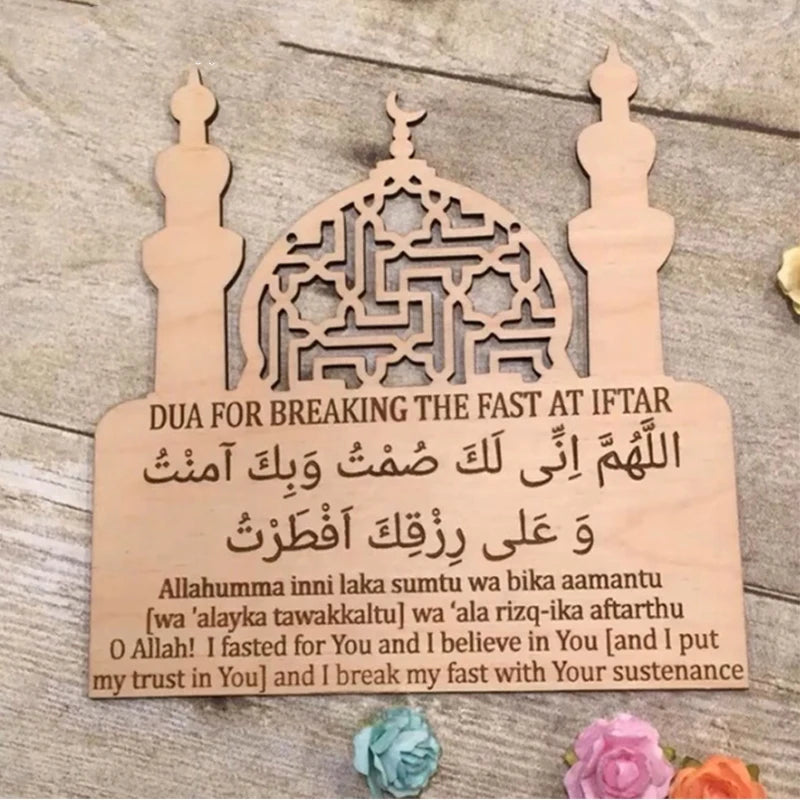 DUA FOR BREAKING THE FAST AT IFTAR
اللَّهُمَّ اِنِّى لَكَ صُمْتُ وَبِكَ آمنْتُ
وَ عَلى رِزْقِكَ اَفْطَرْتُ
Allahumma inni laka sumtu wa bika aamantu
[wa 'alayka tawakkaltu] wa ‘ala rizq-ika aftarthu
O Allah! I fasted for You and I believe in You [and I put
my trust in You] and I break my fast with Your sustenance